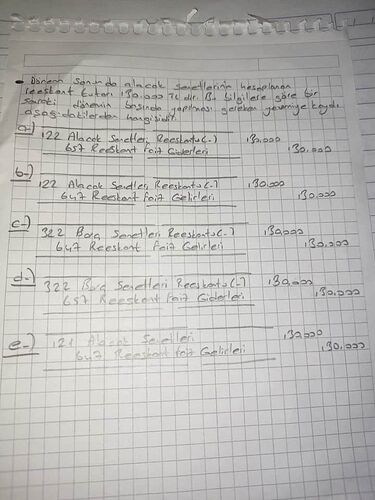 • Dönem Sonunda alacak senetlerinin hesaplanan
reeskont tutarı 130.000 TL dir. Bu bilgilere göre bir
sonraki dönemin başında yapılması gereken yevmiye kaydı
aşağıdakilerden hangisidir.
a-)
122 Alacak Senetleri Reeskontu (-) 130.000
657 Reeskont Faiz Giderleri 130.000
b-)
122 Alacak Senetleri Reeskontu (-) 130.000
647 Reeskont Faiz Gelirleri 130.000
c-)
322 Borç Senetleri Reeskontu (-) 130.000
647 Reeskont Faiz Gelirleri 130.000
d-)
322 Borç Senetleri Reeskontu (-) 130.000
657 Reeskont Faiz Giderleri 130.000
e-)
121 Alacak Senetleri 130.000
647 Reeskont Faiz Gelirleri 130.000